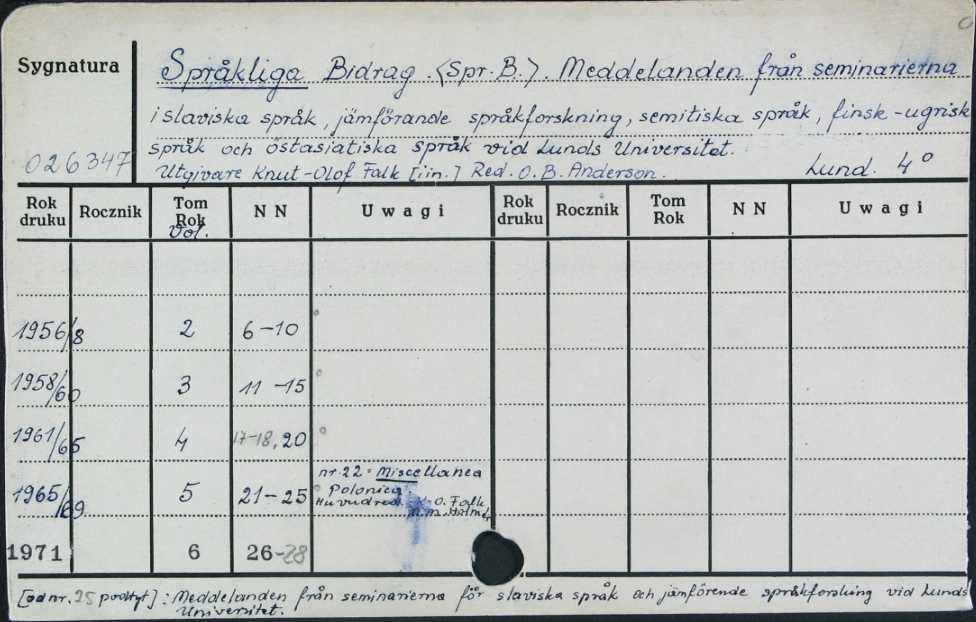 Sygnatura
Språkliga Bidrag <Spr. B.> Meddelanden från seminarierna
i slaviska språk, jämförande språkforskning, semitiska språk, finsk-ugrisk
språk och östasiatiska språk vid Lunds Universitet.
026347 Utgivare Knut-Olof Falk [i in.] Red. O. B. Anderson. Lund. 4°
Rok druku Rocznik Tom Rok Vol. N N Uwagi Rok druku Rocznik Tom Rok N N Uwagi
1956/8 2 6-10
1958/60 3 11-15
1961/65 4 17-18, 20
1965/69 5 21-25 nr. 22 = Miscellanea
Polonica
Huvudred. K-O. Falk
1971 6 26-28
[od nr. 25 podtyt] : Meddelanden från seminarierna för slaviska språk och jämförende språkforskning vid Lunds
Universitet.